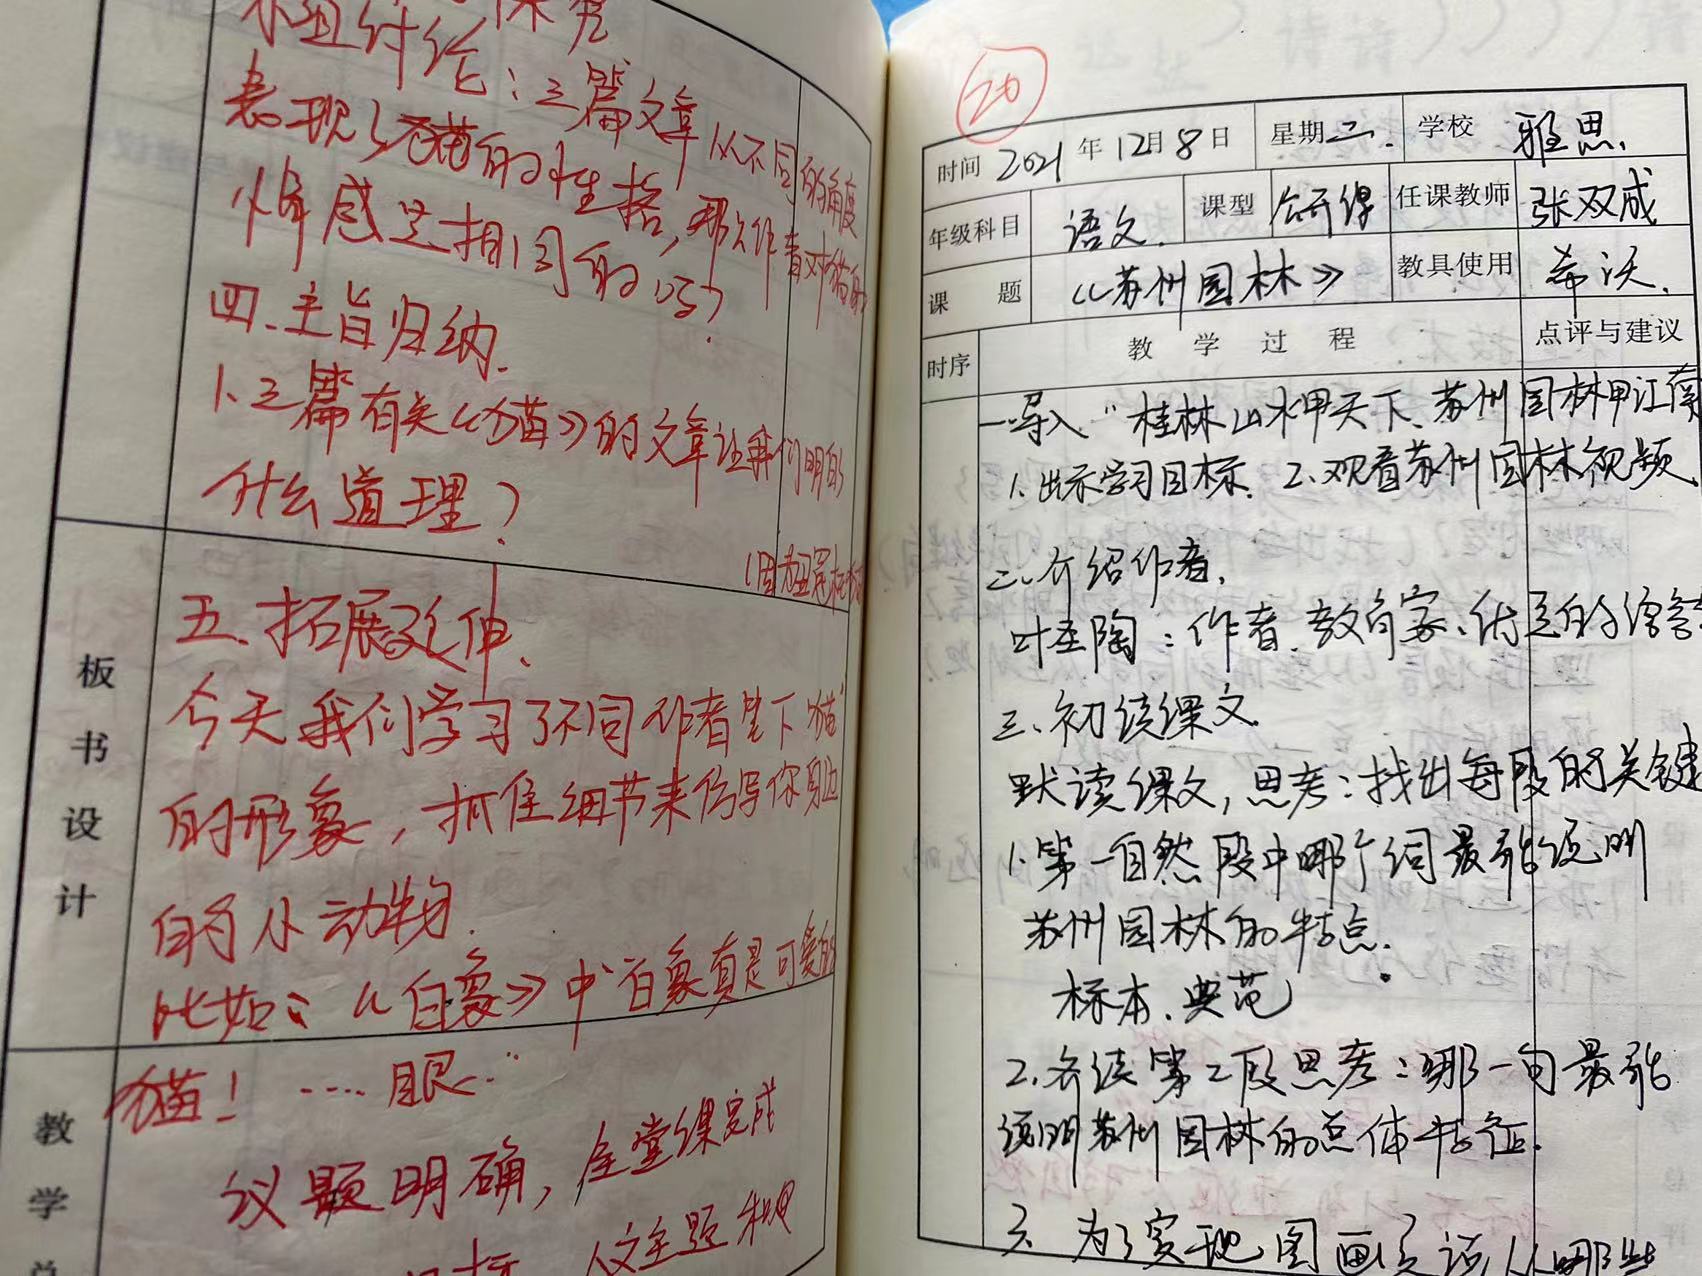 小组讨论：三篇文章从不同的角度
表现了猫的性格，那么作者对猫的
情感是相同的吗？
四、主旨归纳.
1、三篇有关《猫》的文章让我们明白
什么道理？
板书设计
五、拓展延伸、
今天我们学习了不同作者笔下"猫"
的形象，抓住细节来仿写你身边
的小动物.
比如：《白象》中"白象真是可爱的
猫！……眼……"
教学
议题明确，全堂课完成
人文主题和
26
时间 2021 年 12月 8 日 星期二. 学校 雅思.
年级科目 语文. 课型 公开课 任课教师 张双成
课 题 《苏州园林》 教具使用 希沃.
时序 教 学 过 程 点评与建议
一导入"桂林山水甲天下、苏州园林甲江南
1、出示学习目标. 2、观看苏州园林视频
二、介绍作者.
叶圣陶：作者、教育家、优秀的语言
三、初读课文
默读课文，思考：找出每段的关键
1、第一自然段中哪个词最能说明
苏州园林的特点.
标本、典范
2、齐读第二段思考：哪一句最能
说明苏州园林的总体特征.
3、为了实现图画了该从哪些